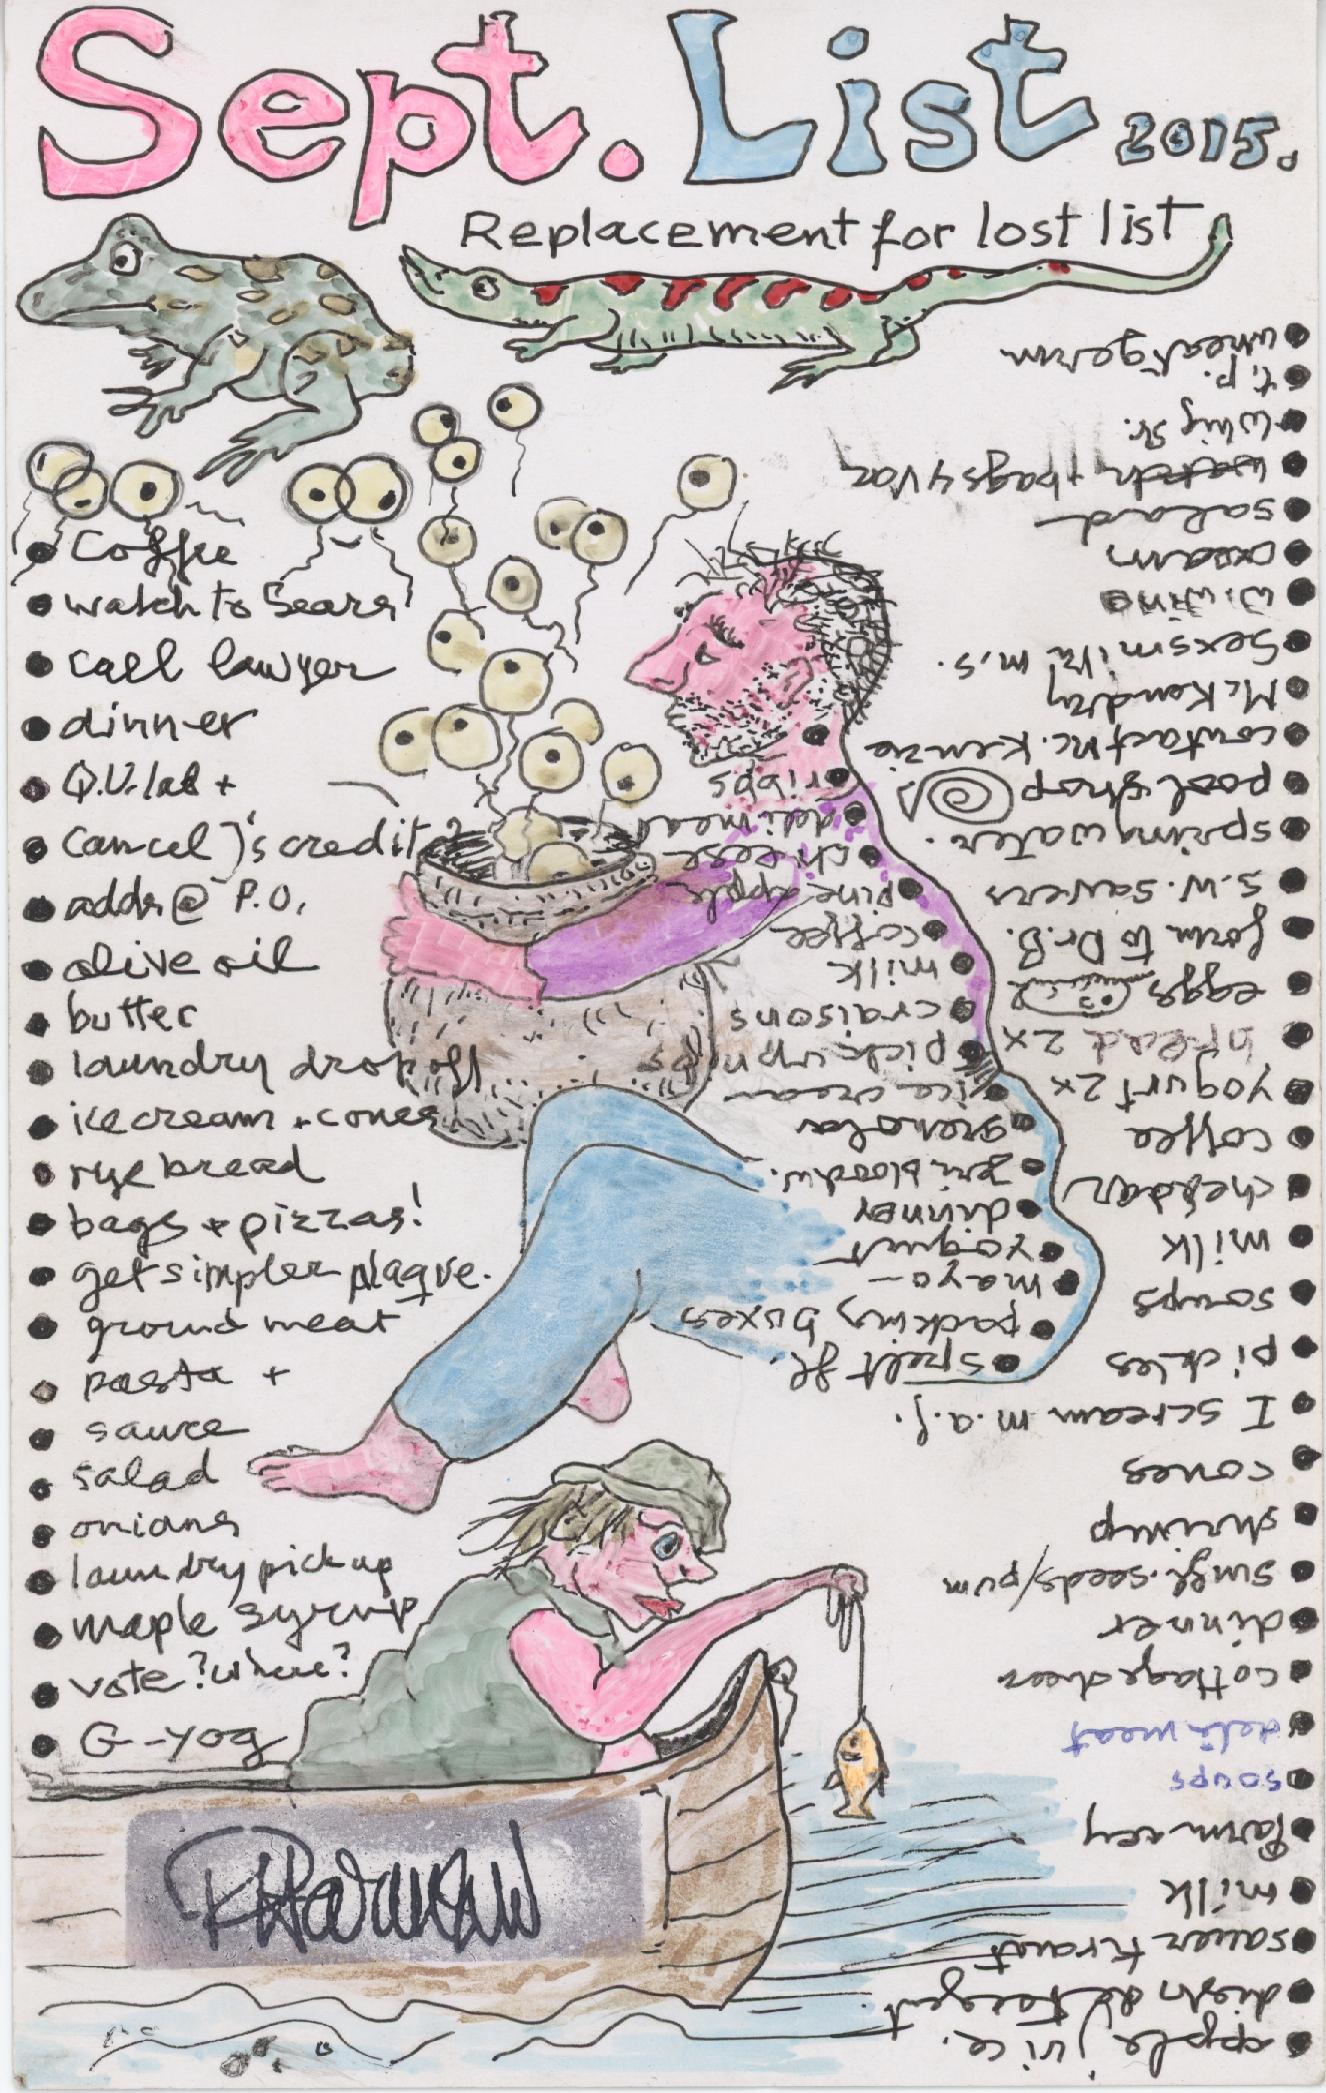 Sept. List 2015.
Replacement for lost list
Coffee
watch to Sears
call lawyer
dinner
Q.V. lab +
cancel J's credit?
addr @ P.O.
olive oil
butter
laundry drop off
ice cream + cones
rye bread
bags + pizzas!
get simpler plaque.
ground meat
pasta +
sauce
salad
onions
laundry pick up
maple syrup
vote? where?
G-yog
apple juice.
dish detergent
sauerkraut
milk
soups
deli meat
cottage cheese
dinner
sunfl. seeds/pum
shrimp
cones
I scream m.a.j.
pickles
soups
milk
cheddar
coffee
yogurt 2x
bread 2x
eggs
form to Dr. B.
S.W. savers
spring water.
pool shop
contact Mc. Kenzie.
McKendry
m.s.
W. wine
cream
salad
+ bags 4 Vac
Whig St.
t.p.
wheat germ
spelt fl.
packing boxes
mayo-
yogurt
dinner
granola
ice cream
pick up
craisons
milk
coffee
pineapple
cheese
deli meat
ribbs